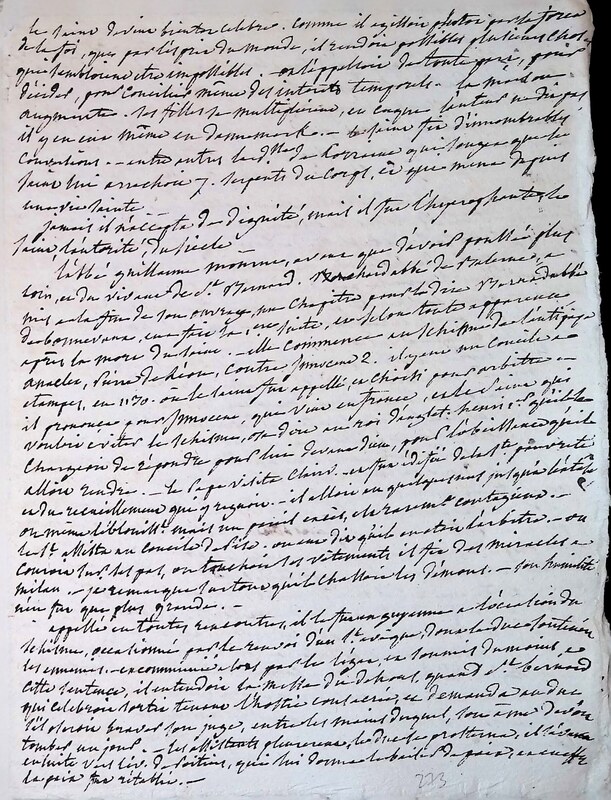 le saint devint bientot celebre. Comme il agissoit plutot par la force
de la foi, que par l'esprit du monde, il rendoit possibles plusieurs choses
qui sembloient etre impossibles — on l'appelloit de toute part, pour
décider, pour concilier même des interets temporels — la maison
augmente. ses filles se multiplierent, et
il y en eut même en Dannemark. — le saint fit d'innombrables
Conversions. — entre autres la de Lorraine qui songea que le
saint lui arrachoit 7. serpents du Corps, et qui mena depuis
une vie sainte.
jamais il n'accepta de dignité, mais il fut
saint l'autorité, du siecle —
l'abbé guillaume mourut, avant que d'avoir poussé plus
loin, et du vivant de St. Bernard. abbé de
mis a la fin de son ouvrage, un Chapitre pour le dire Bernard abbé
de bonnevaux, en a fait la suite, et selon toute apparence
après la mort du saint. — elle commence au schisme de l'antipape
anaclet, Pierre de Léon, contre Innocent 2. il y eut un Concile a
etampes, en 1130. où le saint fut appellé, et choisi pour arbitre —
il prononca pour Innocent, qui vint en france, et le saint qui
vouloit eviter le schisme, osa dire au roi d'anglet. henri 1er. qu'il se
chargeoit de répondre pour lui devant dieu, pour l'obeissance qu'il
alloit rendre. — le Pape visita Clairv. et fut édifié de la ste. pauvreté
et du recueillement qui y regnoit — il alloit
ou même mais un pareil excès, est rarement contagieux. —
le St. assista au concile de Pise. on eut dit qu'il en etoit l'arbitre. — on
couroit sur ses pas, on touchoit ses vêtements, il fit des miracles a
milan. — je remarque surtout qu'il chassoit les démons. — son humilité
n'en fut que plus grande. —
appellé en toutes rencontres, il le fut en guyenne a l'occasion du
schisme, occasionné par le renvoi d'un St. evêque, dont le duc soutenoit
les ennemis. — excommunié alors par le légat, et soumis du moins, a
cette sentence, il entendoit la messe du dehors, quand St. bernard
qui celebroit sortit tenant l'hostie consacrée, et demanda au duc
s'il oseroit braver son juge, entre les mains duquel, son ame devoit
tomber un jour. — les assistants pleurerent, le duc se prosterna, il s'avança
ensuite vers l'ev. de Poitiers, qui lui donna le baiser de paix, et en effet
la paix fut rétablie. —
223